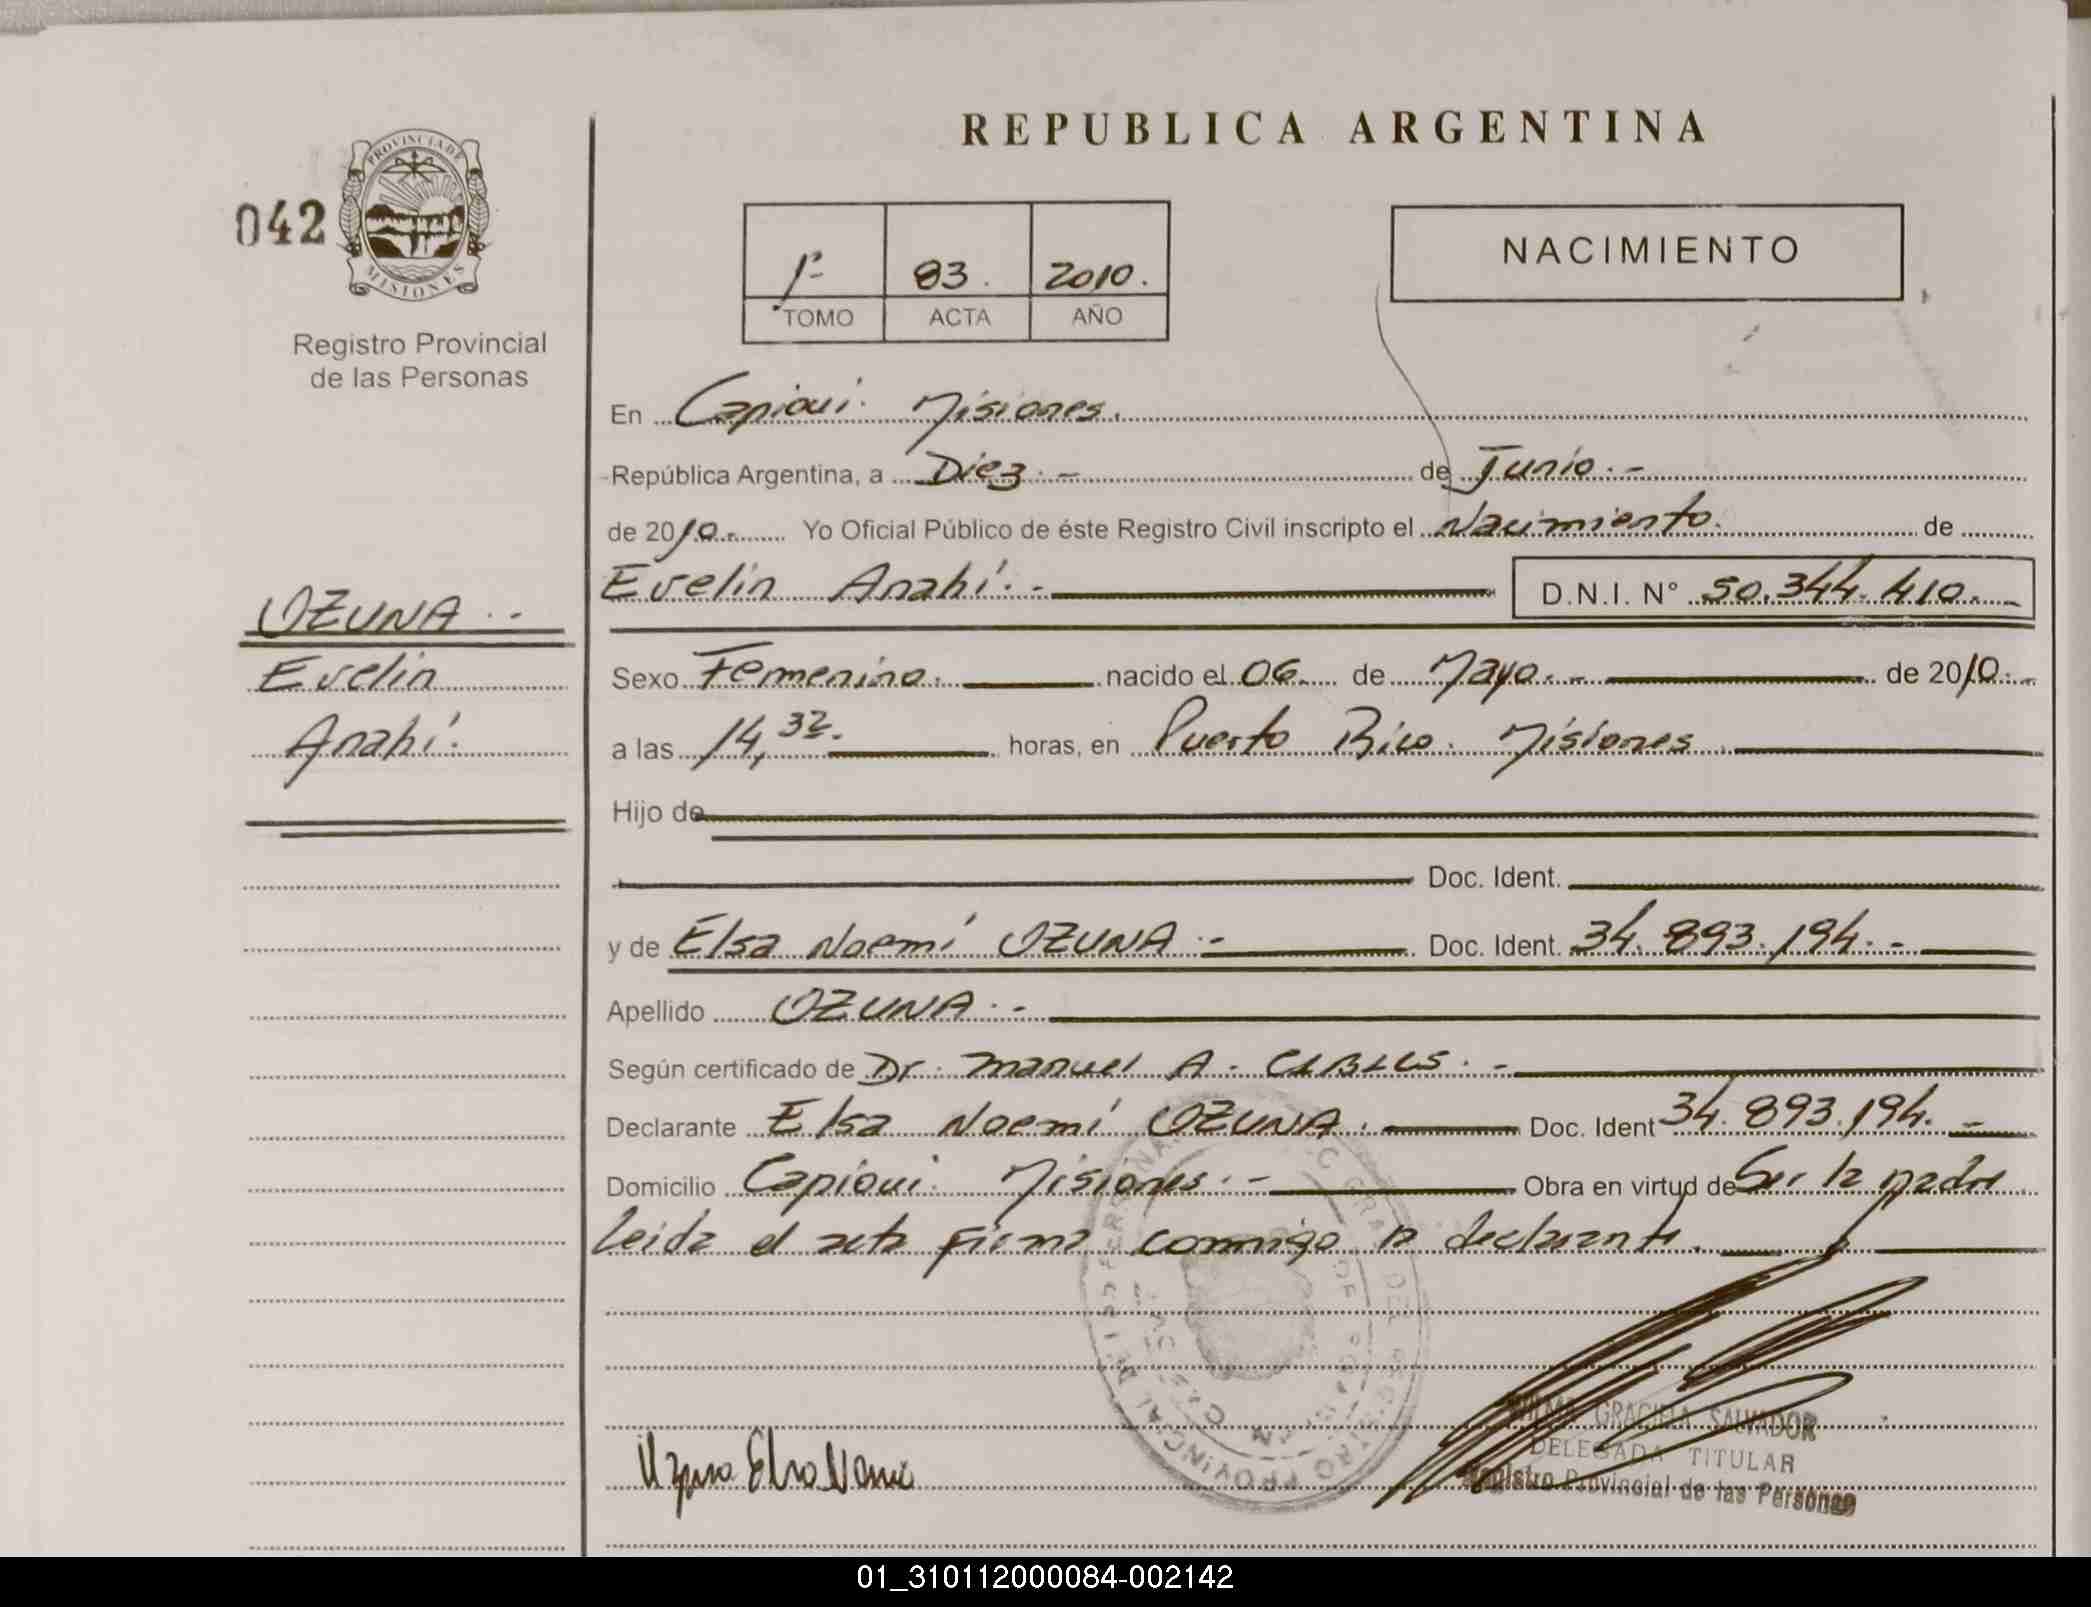 REPUBLICA ARGENTINA
042
PROVINCIA DE
MISIONES
Registro Provincial
de las Personas
1º 83. 2010.
TOMO ACTA AÑO
NACIMIENTO
En Capioui. Misiones.
República Argentina, a Diez.- de Junio.-
de 2010.- Yo Oficial Público de éste Registro Civil inscripto el Nacimiento. de
Evelin Anahí.- D.N.I. N° 50.344.410.-
OZUNA.-
Evelin
Anahí.
Sexo Femenino. nacido el 06. de Mayo.- de 2010.-
a las 14,32. horas, en Puerto Rico. Misiones
Hijo de
Doc. Ident.
y de Elsa Noemí OZUNA.- Doc. Ident. 34.893.194.-
Apellido OZUNA.-
Según certificado de Dr. Manuel A.
Declarante Elsa Noemí OZUNA. Doc. Ident 34.893.194.-
Domicilio Capioui. Misiones.- Obra en virtud de Ser la madre
leida el acta firma conmigo la declarante.
Elsa
GRACIELA SALVADOR
DELEGADA TITULAR
Registro Provincial de las Personas
01_310112000084-002142